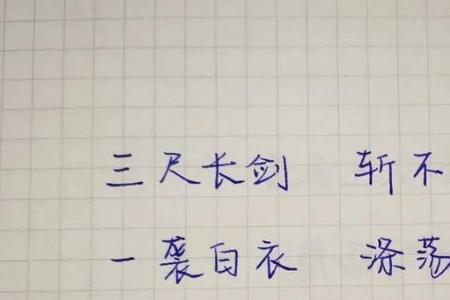 三尺长剑 斩不
一袭白衣 涤荡